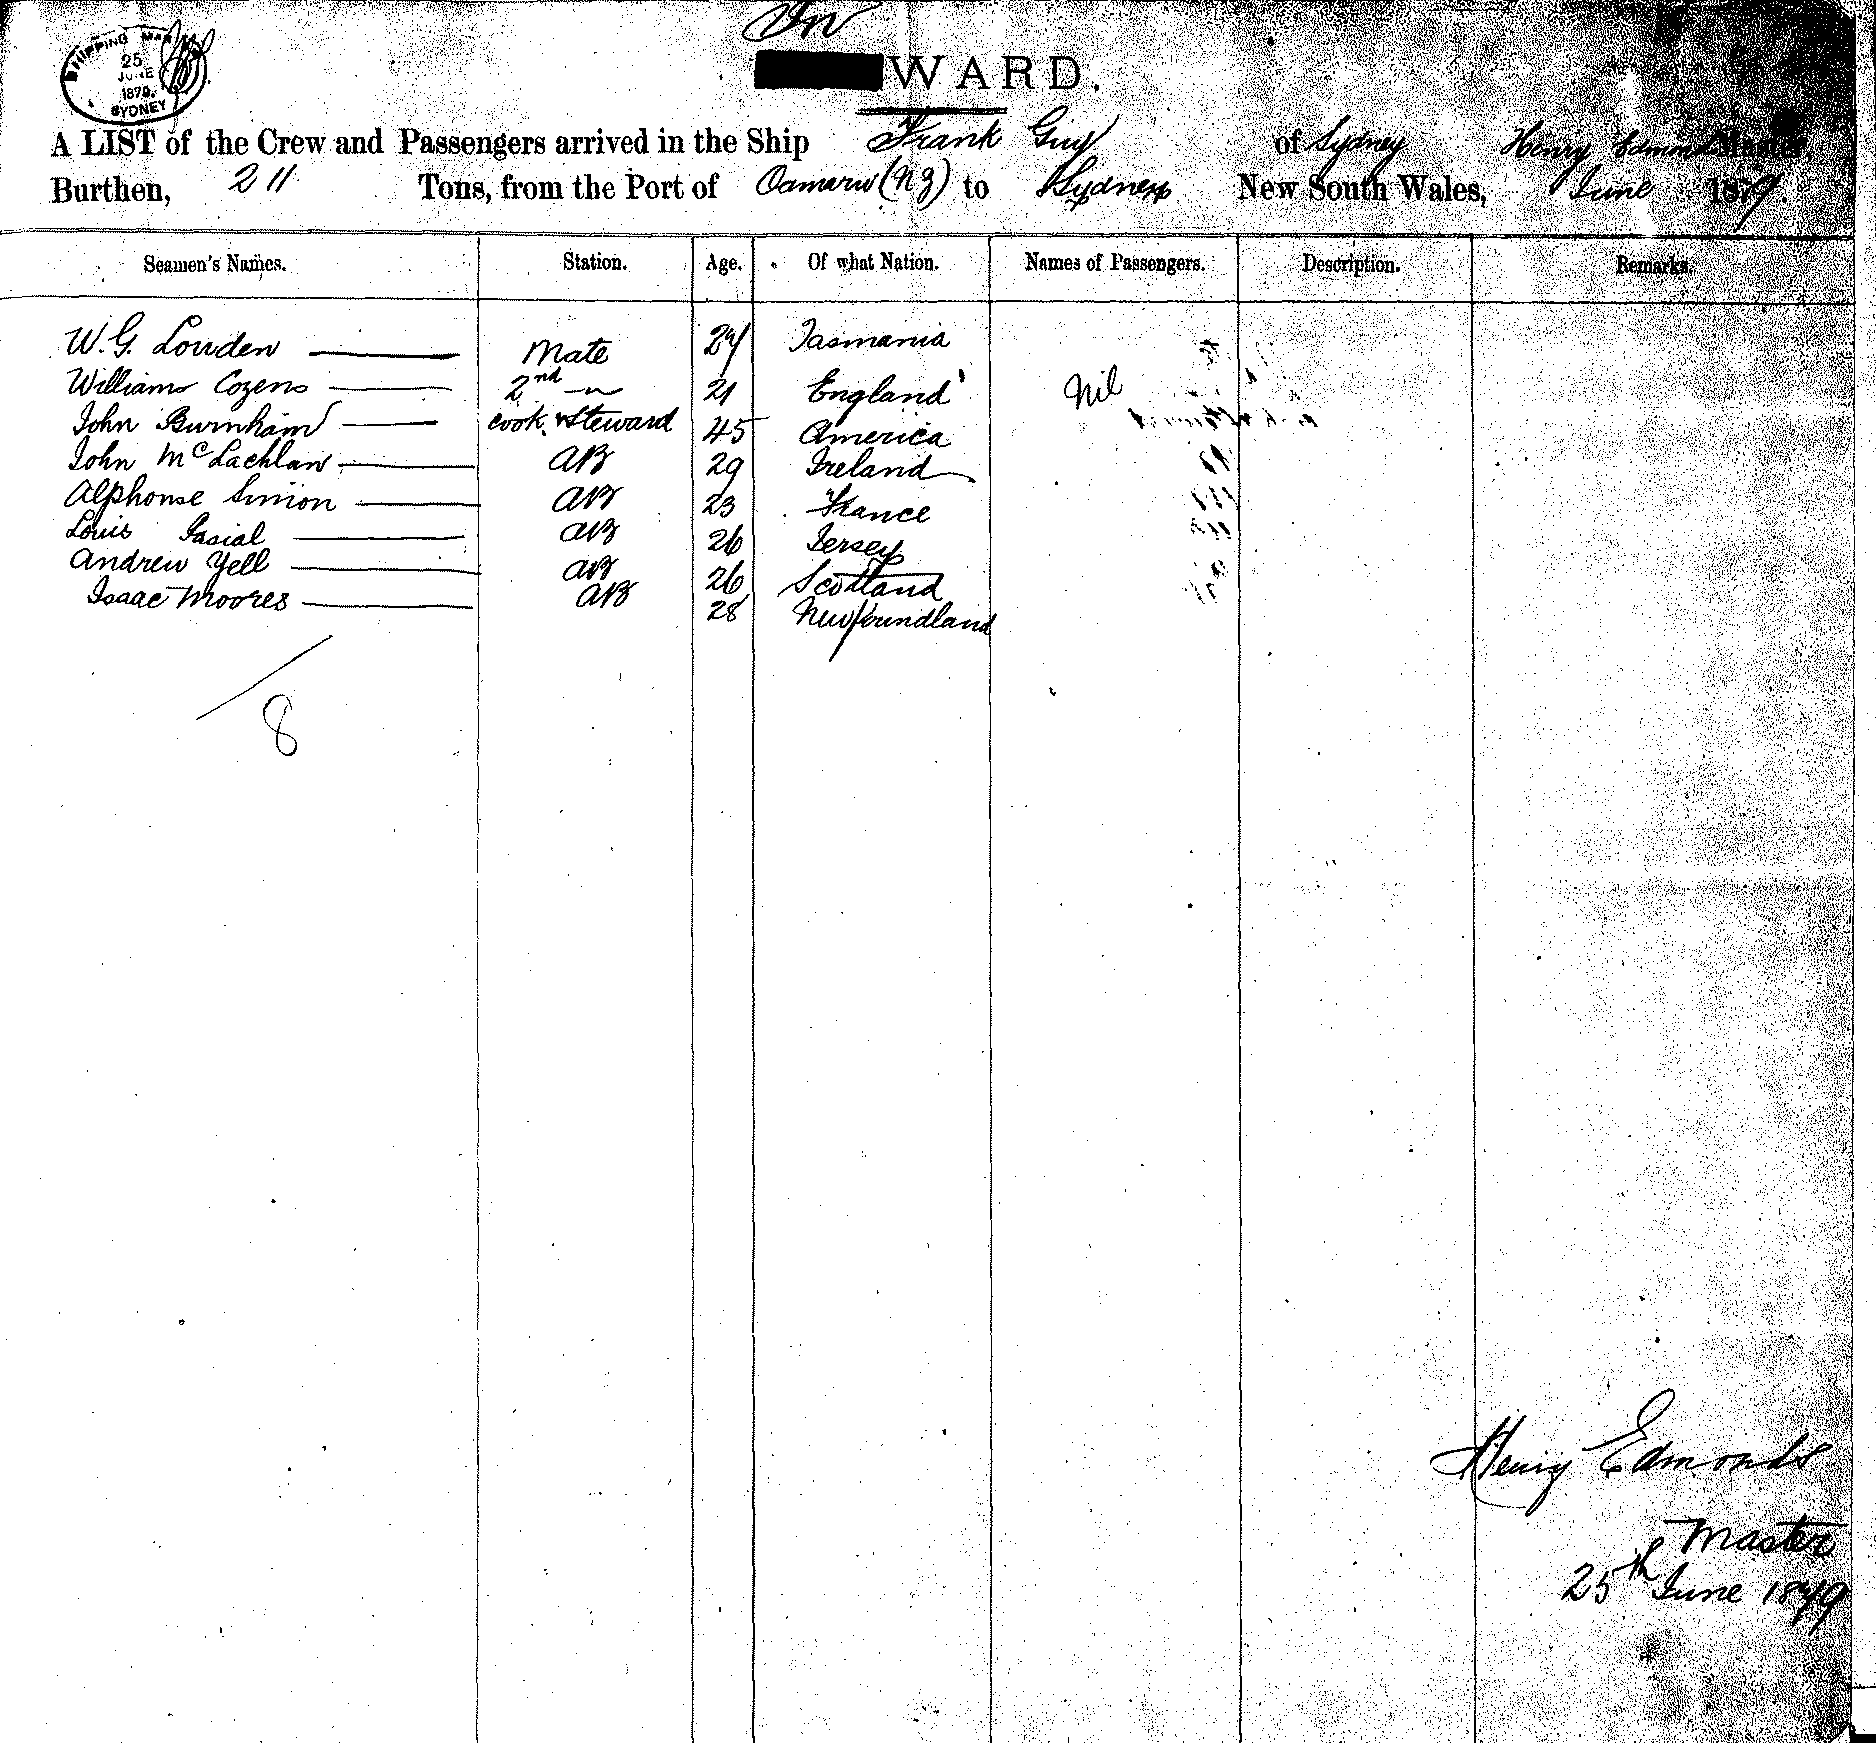 In
WARD.
SHIPPING MAS
25
JUNE
1879
SYDNEY
A LIST of the Crew and Passengers arrived in the Ship Frank Guy of Sydney Henry Edmonds Master,
Burthen, 211 Tons, from the Port of Oamaru (NZ) to Sydney New South Wales, June 1879.
Seamen's Names. Station. Age. Of what Nation. Names of Passengers. Description. Remarks.
W. G. Louden Mate 27 Tasmania
William Cozens 2nd " 21 England Nil
John Burnham cook & Steward 45 America
John McLachlan AB 29 Ireland
Alphonse Simon AB 23 France
Louis AB 26 Jersey
Andrew Yell AB 26 Scotland
Isaac Moores AB 28 Newfoundland
8
Henry Edmonds
Master
25th June 1879